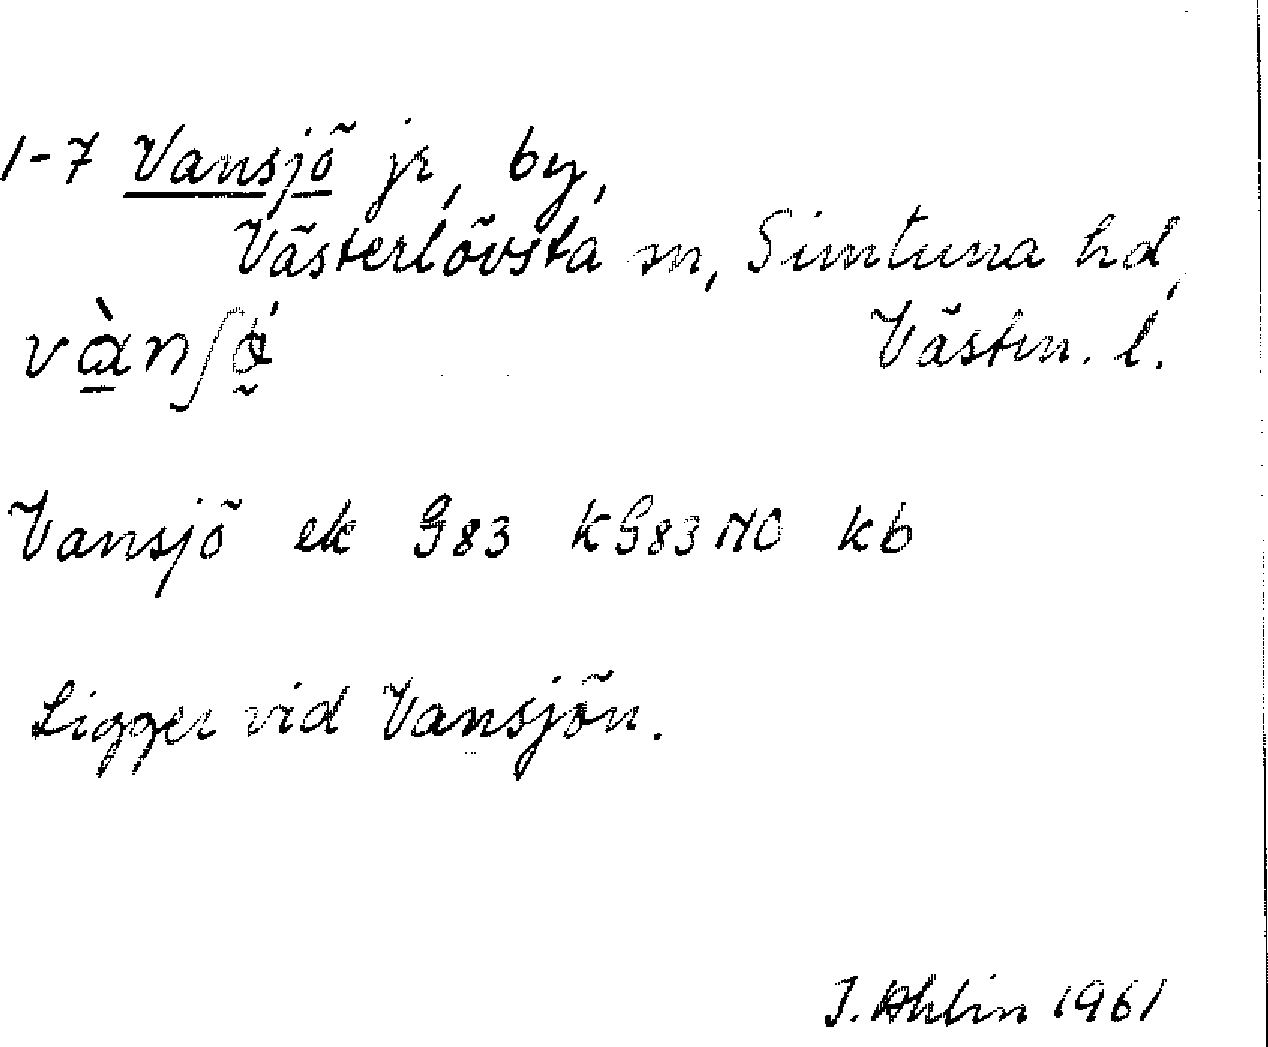 1-7 Vansjö jr, by,
Västerlövsta sn, Simtuna hd,
vànʃö́ Västm. l.
Vansjö ek G83 KG83NO kb
Ligger vid Vansjön.
I. Ahlin 1961